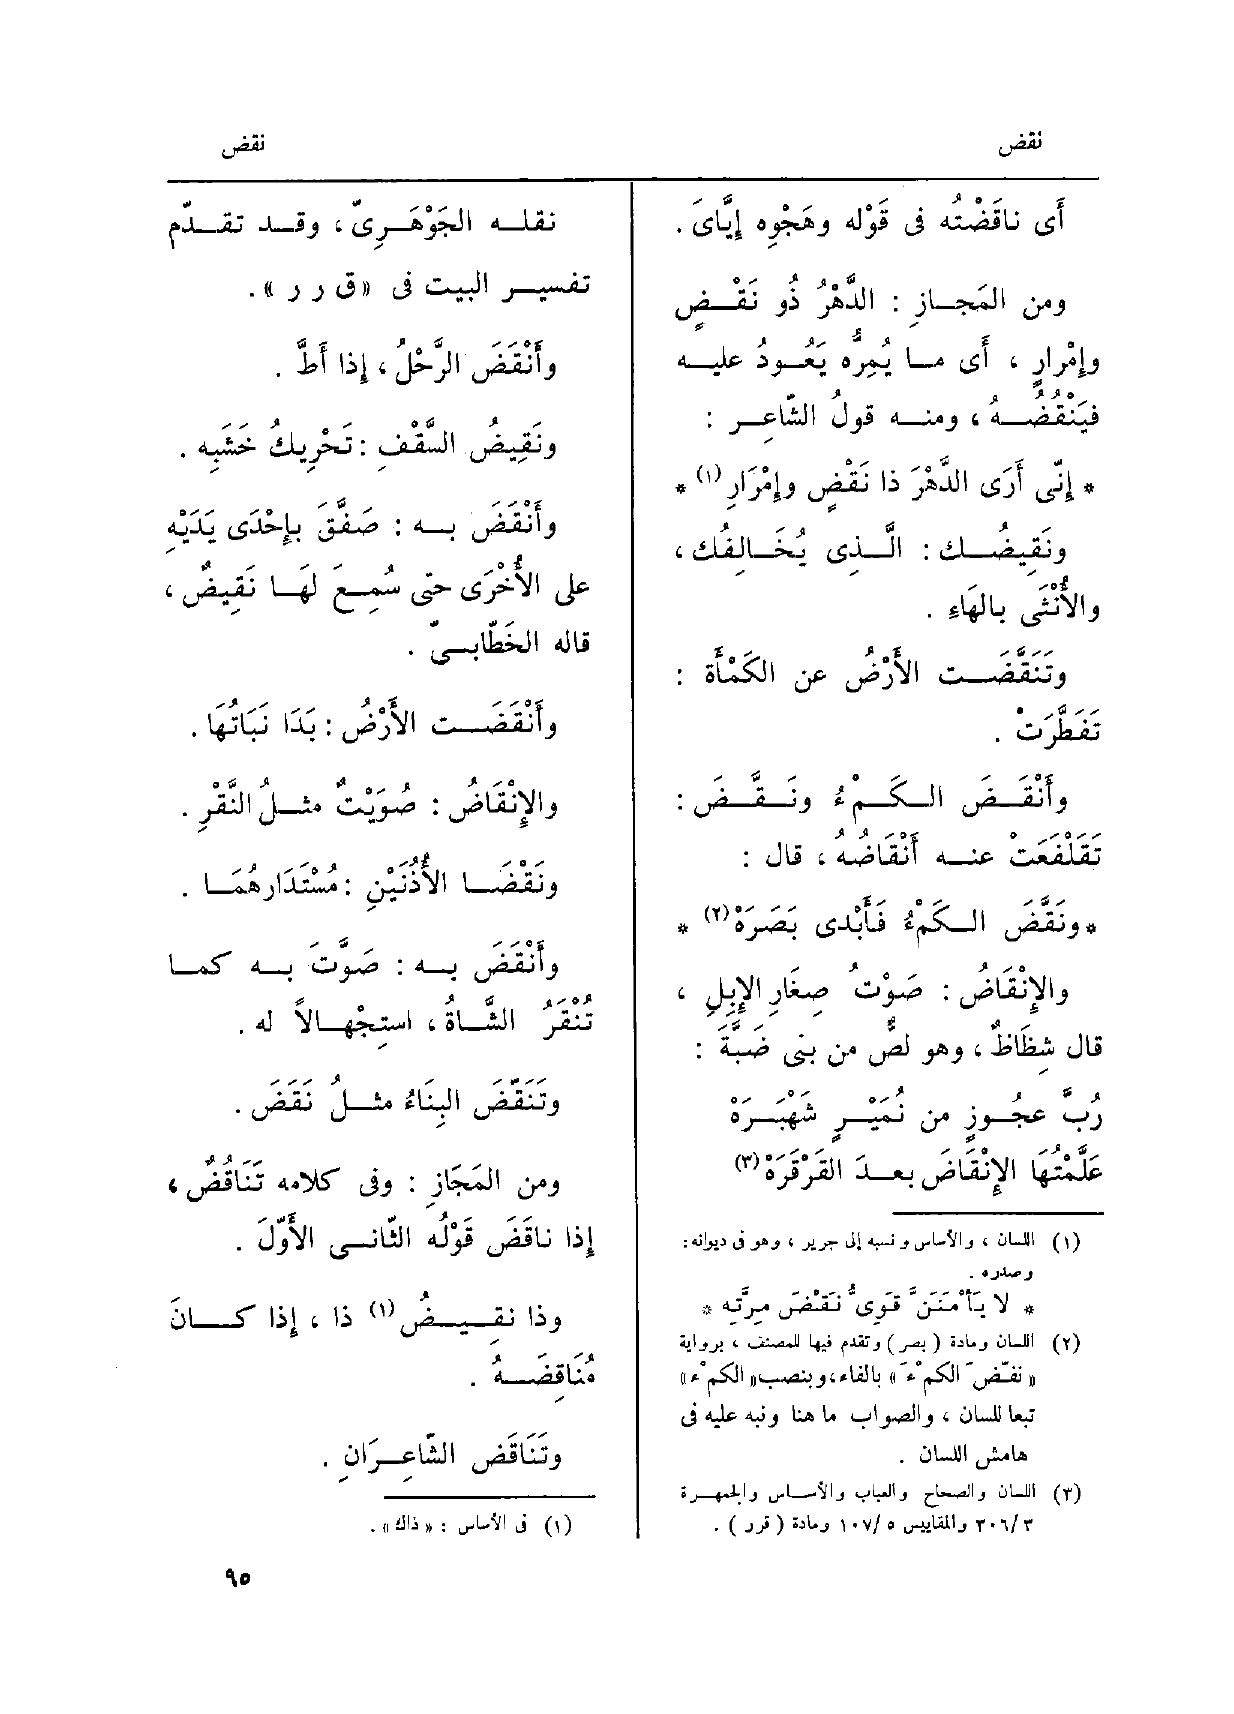 نقض
نقض
أَى ناقَضْتُه فى قَوْله وهَجْوِه إِيَّاىَ .
ومن المَجـازِ : الدَّهْرُ ذُو نَقْـضٍ
وإِمْرارٍ ، أَى مـا يُمِرُّه يَعُـودُ عليـه
فيَنْقُضُـهُ ، ومنـه قولُ الشّاعـرِ :
* إِنّى أَرَى الدَّهْرَ ذا نَقْضٍ وإِمْرَارِ (١) *
ونَقِيضُـك : الَّـذِى يُخَـالِفُك ،
والأُنْثَى بالهَاءِ .
وتَنَقَّضَـت الأَرْضُ عن الكَمْأَة :
تَفَطَّرَتْ .
وأَنْقَـضَ الـكَـمْءُ ونَـقَّـضَ :
تَقَلْفَعَتْ عنـه أَنْقَاضُهُ ، قال :
*ونَقَّضَ الـكَمْءُ فَأَبْدَى بَصَرَهْ (٢) *
والإِنْقَاضُ : صَوْتُ صِغَارِ الإِبِلِ ،
قال شِظَاظٌ ، وهو لصٌّ من بنى ضَبَّةَ :
رُبَّ عجُـوزٍ من نُمَيْـرٍ شَهْبَـرَهْ
عَلَّمْتُهَا الإِنْقَاضَ بعـدَ القَرْقَرَهْ (٣)
(١) اللسان ، والأساس ونسبه إلى جرير ، وهو فى ديوانه:
وصدره .
* لا يَأْمَنَنَّ قَوِىٌّ نَقْضَ مِرَّتِه *
(٢) اللسان ومادة ( بصر ) وتقدم فيها للمصنف ، برواية
« نفّضَ الكمْءَ » بالفاء، وبنصب« الكمْء »
تبعا للسان ، والصواب ما هنا ونبه عليه فى
هامش اللسان .
(٣) اللسان والصحاح والعباب والأسـاس والجمهـرة
٣٠٦/٣ والمقاييس ١٠٧/٥ ومادة ( قرر ) .
نقلـه الجَوْهَـرِىّ ، وقـد تقـدّم
تفسيـر البيت فى «ق ر ر» .
وأَنْقَضَ الرَّحْلُ ، إِذا أَطَّ .
ونَقِيضُ السَّقْفِ : تَحْرِيكُ خَشَبِه .
وأَنْقَضَ بـه : صَفَّقَ بإِحْدَى يَدَيْهِ
على الأُخْرَى حتى سُمِـعَ لهَـا نَقِيضٌ ،
قاله الخَطّابـىّ .
وأَنْقَضَـت الأَرْضُ : بَدَا نَبَاتُهَا .
والإِنْقَاضُ : صُوَيْتٌ مثـلُ النَّقْرِ .
ونَقْضَـا الأُذُنَيْنِ : مُسْتَدَارهُمَـا .
وأَنْقَضَ بـه : صَوَّتَ بـه كمـا
تُنْقَرُ الشَّـاةُ ، استِجْهـالاً له .
وتَنَقَّضَ البِنَاءُ مثـلُ نَقَضَ .
ومن المَجَازِ : وفى كلامه تَنَاقُضٌ ،
إِذا ناقَضَ قَوْلُه الثّانـى الأَوَّلَ .
وذا نقِـيـضُ (١) ذا ، إِذا كـانَ
مُنَاقِضَـهُ .
وتَنَاقَضَ الشّاعِـرَانِ .
(١) فى الأساس : « ذاك» .
٩٥